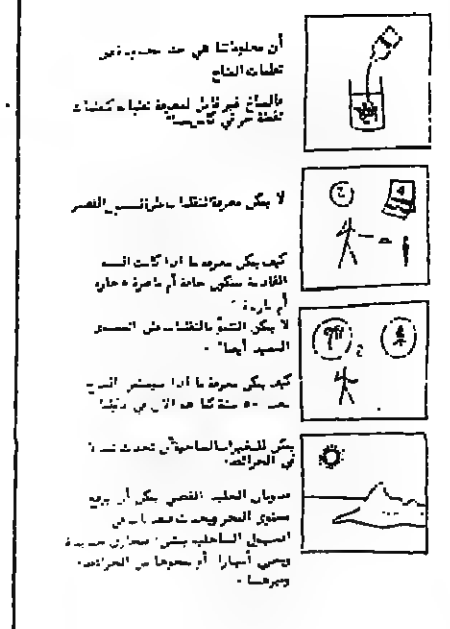 أن معلوماتنا هي حد
تقلبات المناخ
فالمناخ غير قابل لمعرفة تقلباته كتقلبات
نقطة حبر في كأس
لا يمكن معرفة التقلبات على المدى القصير
كيف يمكن معرفة ما اذا كانت السنة
القادمة ستكون جافة أم ماطرة حارة
أم باردة ؟
لا يمكن التنبؤ بالتقلبات على المدى
البعيد أيضا" .
كيف يمكن معرفة ما اذا سيستمر المناخ
بعد ٥٠ سنة كما هو الآن في
يمكن للتغيرات المناخية أن تحدث
في الخرائط.
ذوبان الجليد القطبي يمكن أن يرفع
مستوى البحر ويحدث
السهول الساحلية صحارى جديدة
أنهارا" أو يمحوها من الخرائط.
وغيرها .